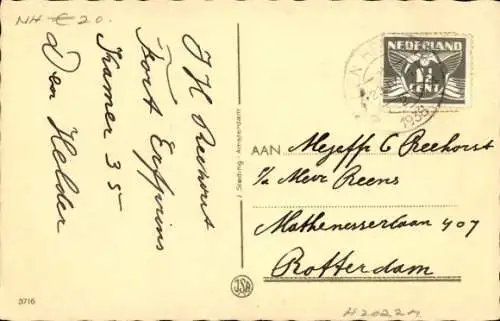 NH € 20.
J H Reehorst
Fort Erfprins
Kamer 35
Den Helder
J. Sleding - Amsterdam
JSA
3716
NEDERLAND
1½
CENT
1938
AAN Mejeffr C Reehorst
p/a Mevr Reens
Mathenesserlaan 407
Rotterdam